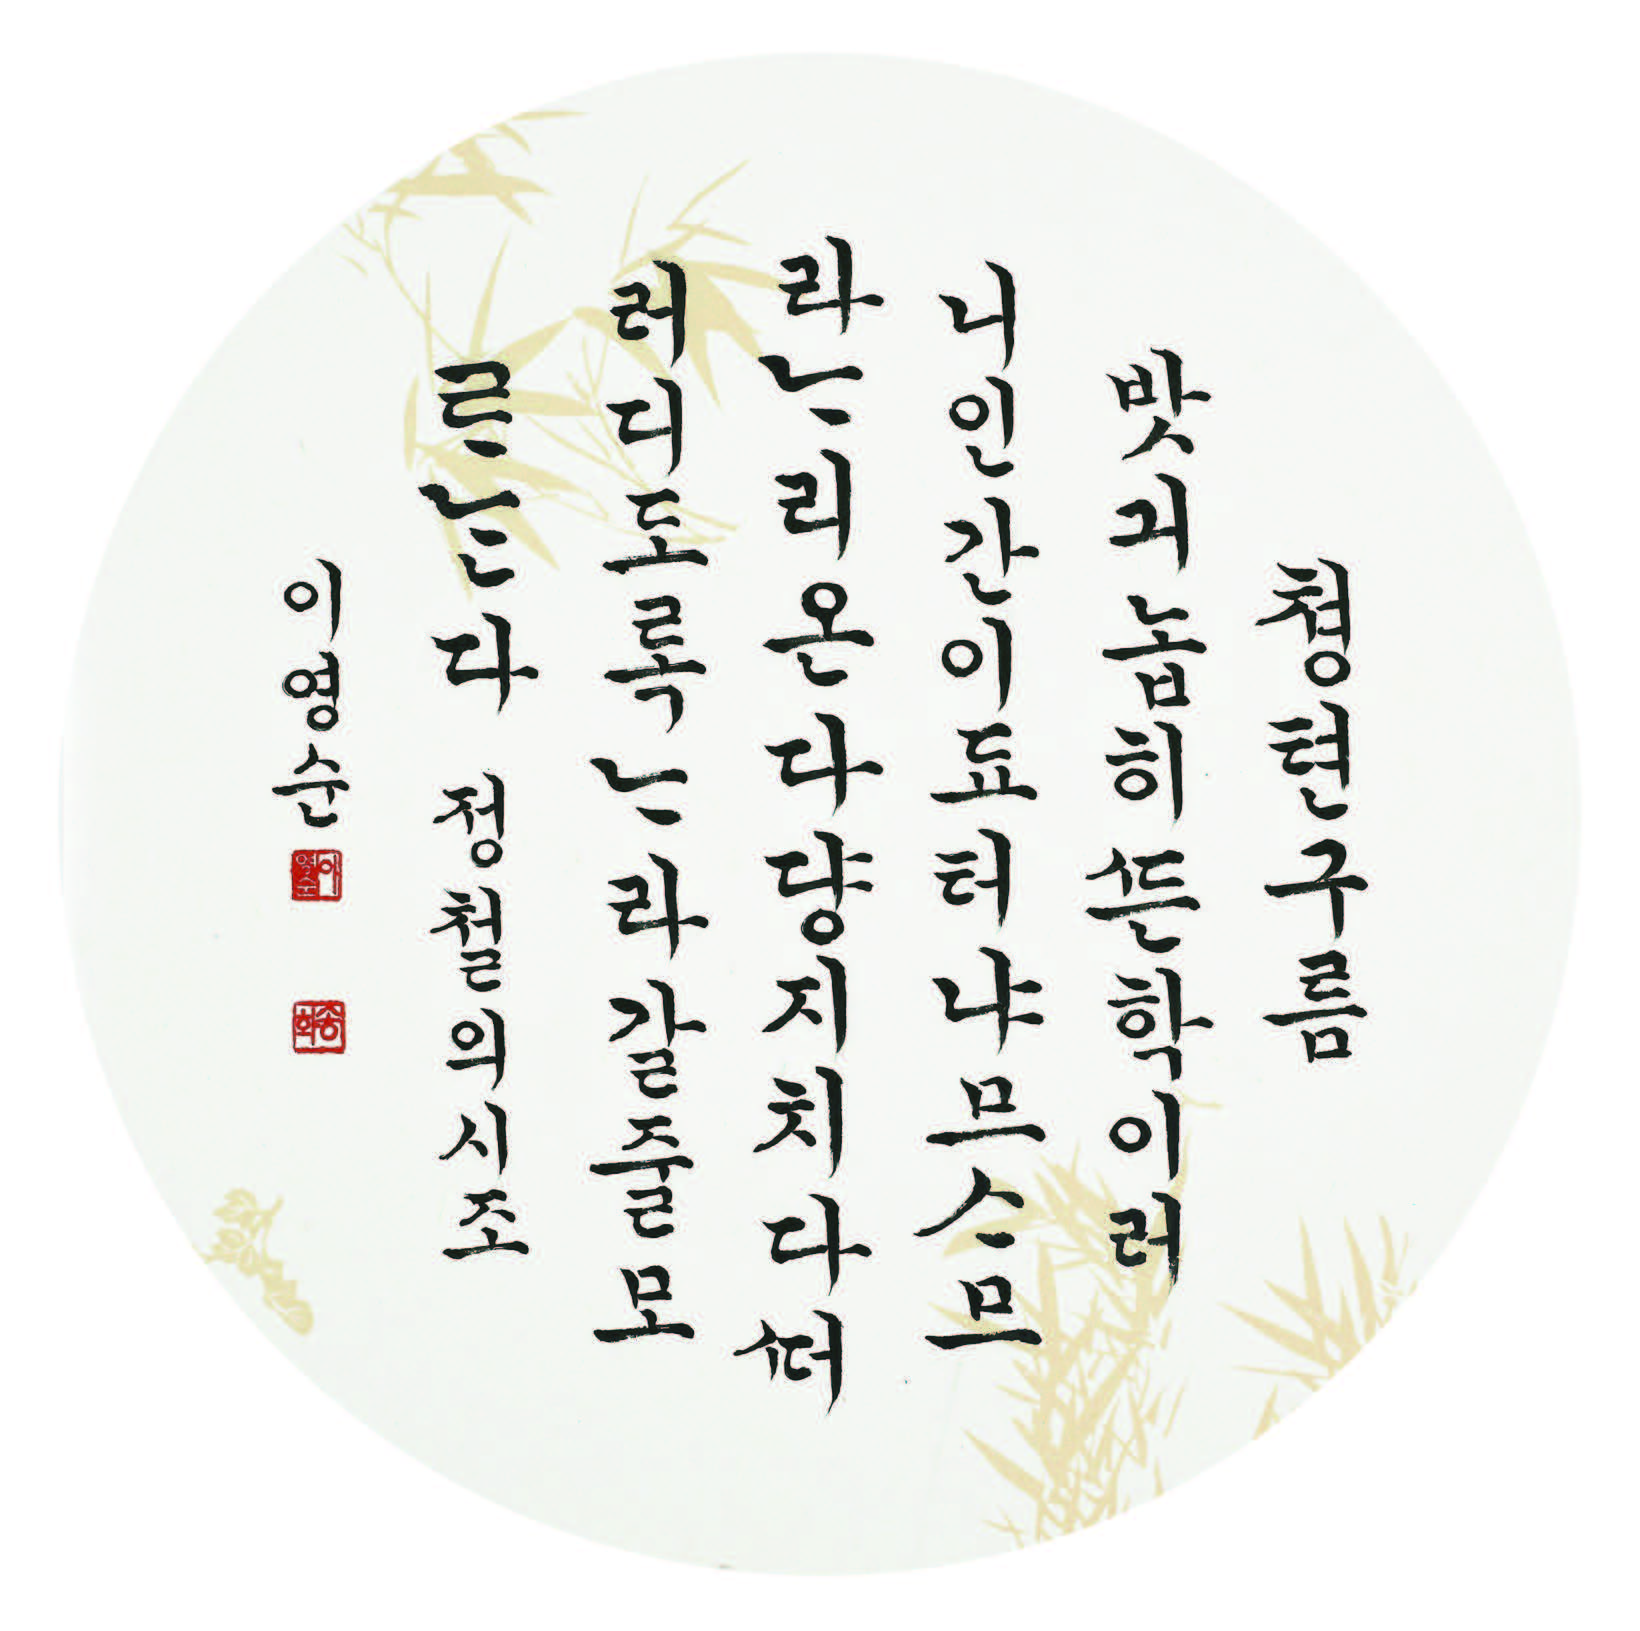 쳥텬구름
밧긔놉히ᄯᅳᆫ학이러
니인간이됴터냐므스므
라ᄂᆞ리온다댱지치다ᄯᅥ
러디도록ᄂᆞ라갈줄모
ᄅᆞᄂᆞᆫ다 정철의시조
이영순
이영순
송화